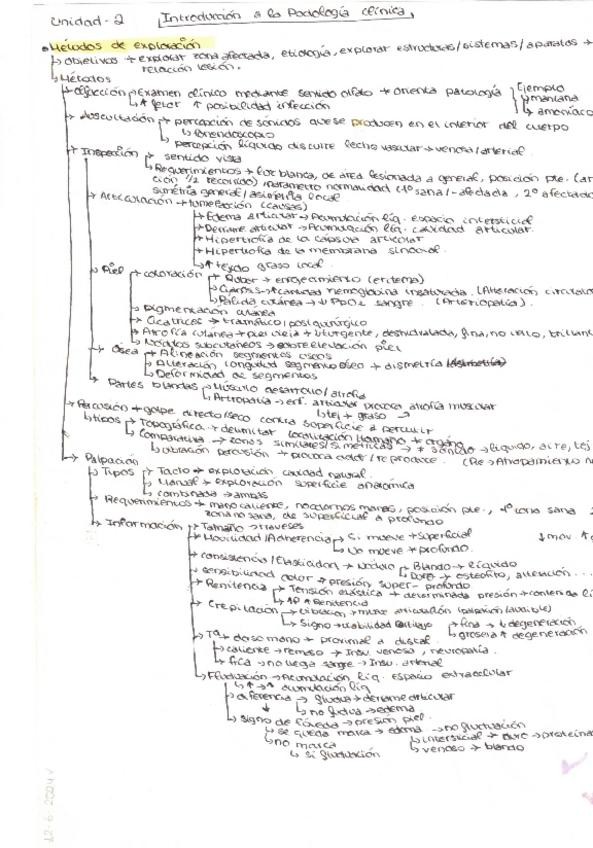 Unidad-2 Introducción a la Podología clínica.
Métodos de exploración
Objetivos → explorar zona afectada, etiología, explorar estructuras/sistemas/aparatos →
relación lesión.
Métodos
Olfacción → examen clínico mediante sentido olfato → orienta patología Ejemplo
↑ fetor ↑ posibilidad infección manzana
amoniaco
Auscultación → percepción de sonidos que se producen en el interior del cuerpo
fonendoscopio
percepción líquido discurre lecho vascular → venoso/arterial.
Inspección → sentido vista
Requerimientos → luz blanca, de área lesionada a general, posición pte.
ción 1/2 recorrido) parámetro normalidad (1º sana/-afectada, 2º afectada
simetría general/asimetría local
Articulación → tumefacción (causas)
Edema articular → Acumulación líq. espacio intersticial
Derrame articular → Acumulación líq. cavidad articular.
Hipertrofia de la cápsula articular
Hipertrofia de la membrana sinovial.
↑ tejido graso local.
Piel → coloración → Rubor → enrojecimiento (eritema)
Cianosis → ↑ cantidad hemoglobina insaturada. (Alteración circulator
Palidez cutánea → ↓ PpO2 sangre. (Arteriopatía).
Pigmentación cutánea
Cicatrices → traumático/postquirúrgico
Atrofia cutánea → piel vieja → turgente, deshidratada, fina, no vello, brillant
Nódulos subcutáneos → sobreelevación piel
Ósea → Alineación segmentos óseos
Alteración longitud segmento óseo → dismetría
Deformidad de segmentos
Partes blandas → Músculo desarrollo/atrofia
Artropatía → enf. articular provoca atrofia muscular
tej → graso →
Percusión → golpe directo/seco contra superficie a percutir
tipos → Topográfica → delimitar localización/tamaño → órgano
Comparativa → zonas similares/simétricas → ≠ sonido → líquido, aire, tej
Vibración percusión → provoca dolor/reproduce.
Palpación
Tipos → Tacto → exploración cavidad natural.
Manual → exploración superficie anatómica
combinada → ambas
Requerimientos → mano caliente, no movernos manos, posición pte., 1º zona sana
zona no sana, de superficial a profundo
Información → Tamaño → traveses
Movilidad/Adherencia → Si mueve → superficial ↓ mov. ↑
No mueve → profundo.
Consistencia/Elasticidad → Nódulo → Blando → líquido
Duro → osteofito, alteración...
Sensibilidad dolor → presión super-profundo
Renitencia → Tensión elástica → determinada presión → contenido lí
↑P ↑ Renitencia
Crepitación → vibración → mueve articulación (palpación/audible)
Signo → viabilidad cartílago → fina → ↓ degeneración
grosera ↑ degeneración
Tª → dorso mano → proximal a distal.
caliente → remoso → Insu. venosa, neuropatía.
fría → no llega sangre → Insu. arterial
Fluctuación → Acumulación líq. espacio extracelular
↑ → ↑ acumulación líq
diferencia → fluctúa → derrame articular
no fluctúa → edema
Signo de fóvea → presión piel.
se queda marca → edema → no fluctuación
no marca intersticial → duro → proteína
Si fluctuación venoso → blando
12-6-2024